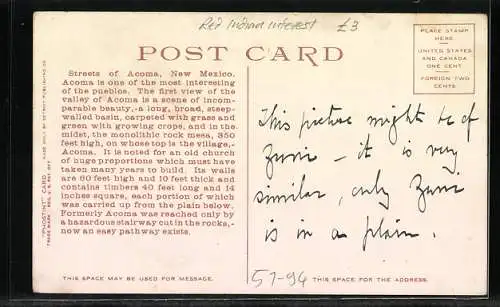 Red Indian interest £3
POST CARD
PLACE STAMP
HERE
UNITED STATES
AND CANADA
ONE CENT
FOREIGN TWO
CENTS
Streets of Acoma, New Mexico.
Acoma is one of the most interesting
of the pueblos. The first view of the
valley of Acoma is a scene of incom-
parable beauty,-a long, broad, steep-
walled basin, carpeted with grass and
green with growing crops, and in the
midst, the monolithic rock mesa, 350
feet high, on whose top is the village,-
Acoma. It is noted for an old church
of huge proportions which must have
taken many years to build. Its walls
are 60 feet high and 10 feet thick and
contains timbers 40 feet long and 14
inches square, each portion of which
was carried up from the plain below.
Formerly Acoma was reached only by
a hazardous stairway cut in the rocks,-
now an easy pathway exists.
"PHOSTINT" CARD
MADE ONLY BY DETROIT PUBLISHING CO.
TRADE MARK REG. U.S. PAT. OFF.
This picture might be of
Zuni - it is very
similar, only Zuni
is in a plain.
THIS SPACE MAY BE USED FOR MESSAGE.
57-94
THIS SPACE FOR THE ADDRESS.